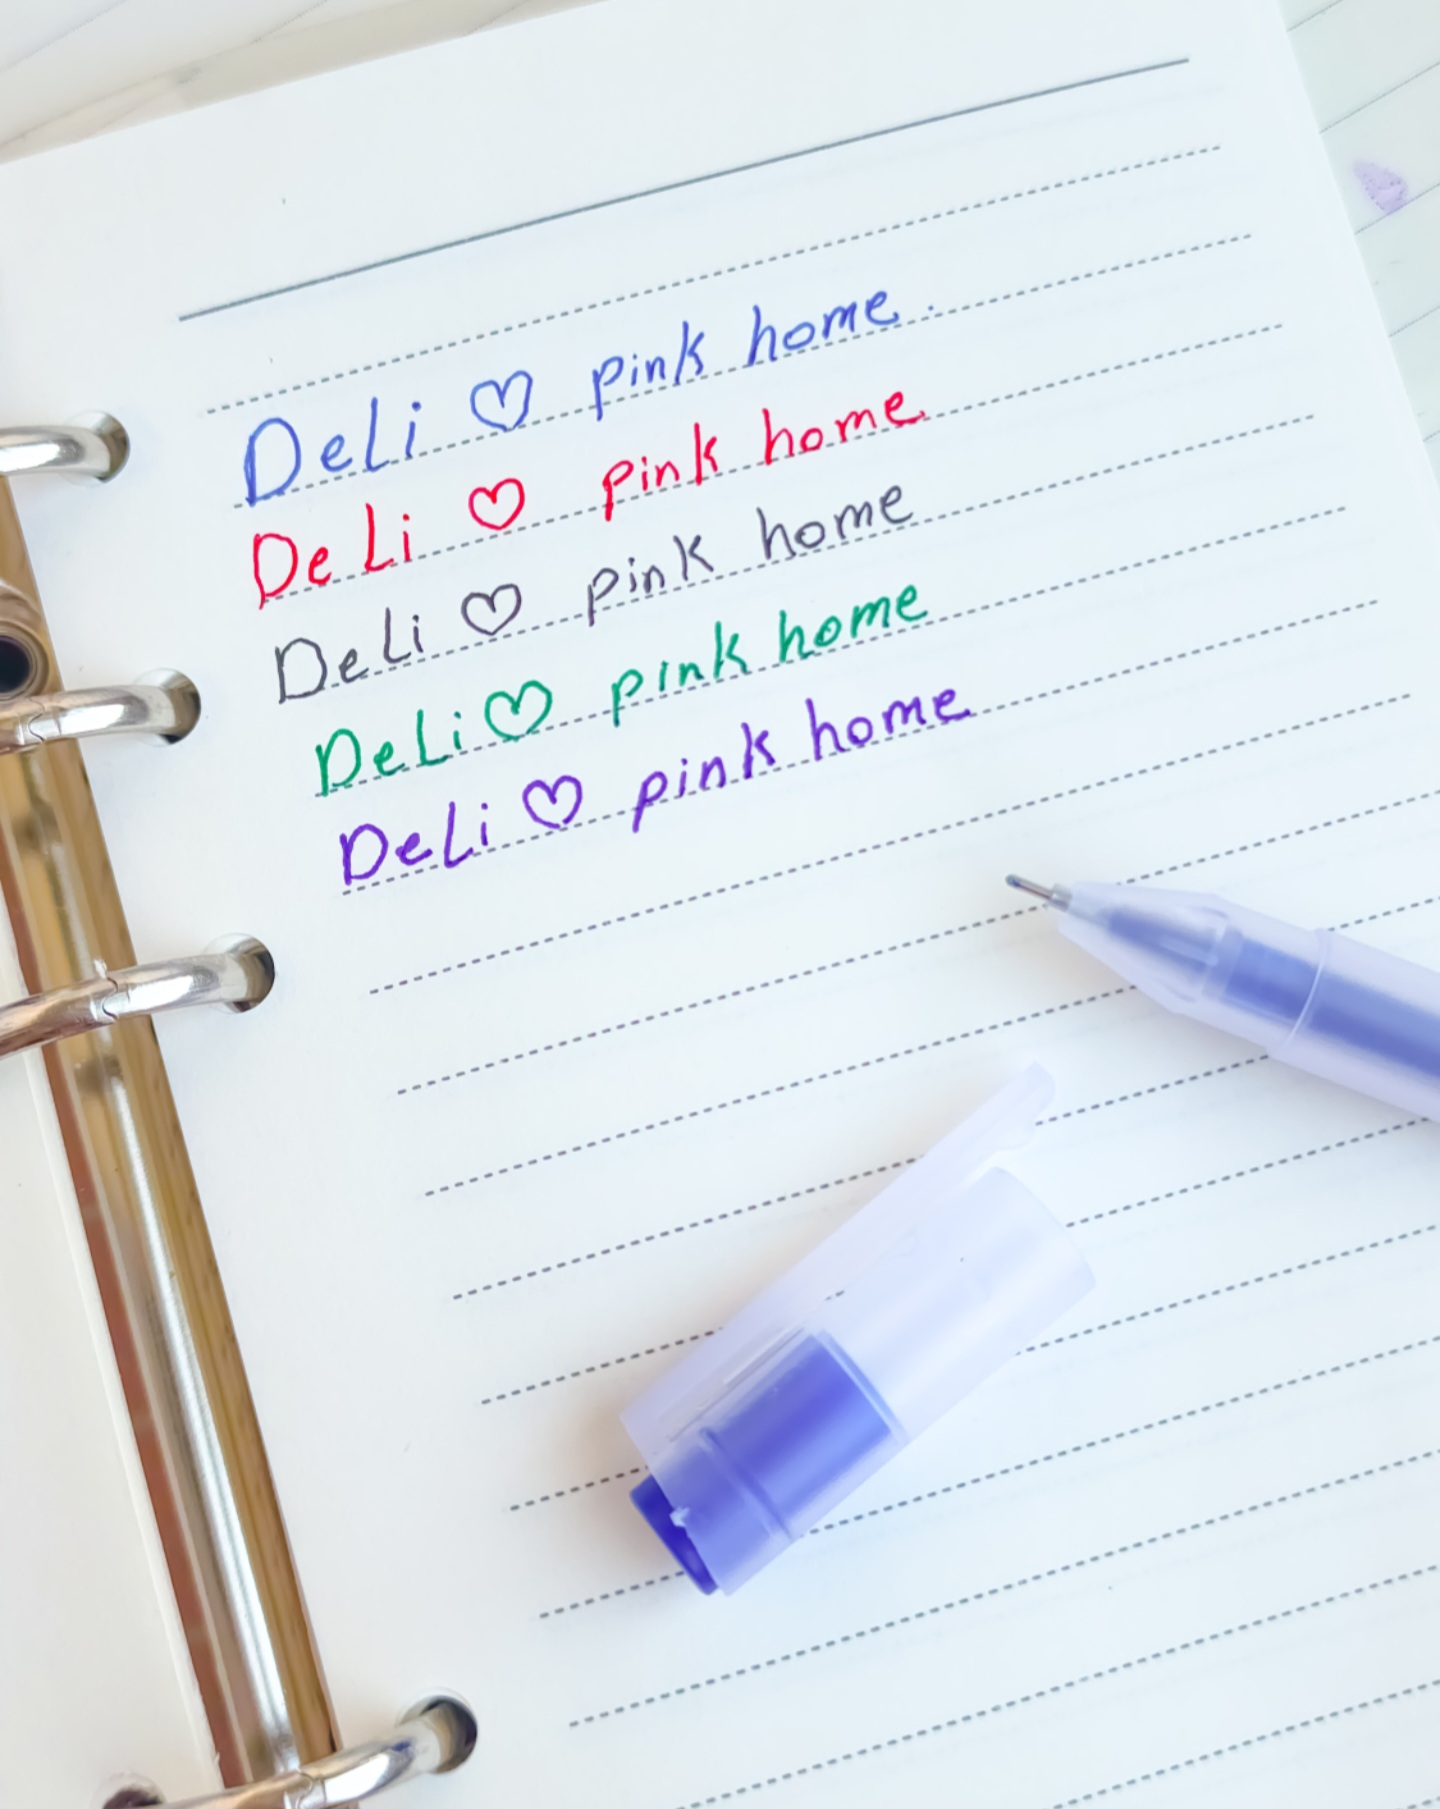 Deli ♡ pink home.
Deli ♡ pink home
Deli ♡ pink home
Deli ♡ pink home
Deli ♡ pink home